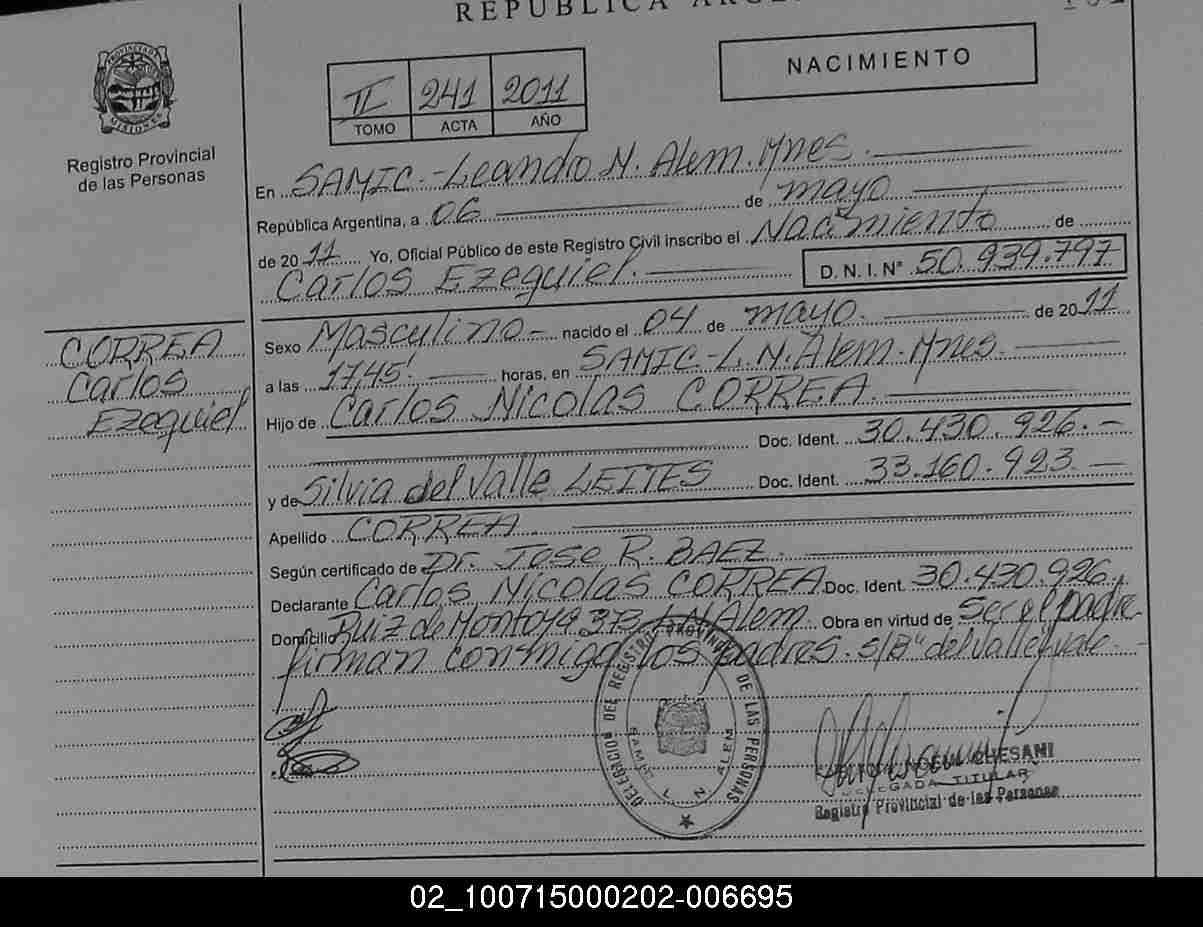 REPUBLICA ARGE
PROVINCIA DE
MISIONES
Registro Provincial
de las Personas
II 241 2011
TOMO ACTA AÑO
NACIMIENTO
En SAMIC.-Leandro N. Alem. Mnes.
República Argentina, a 06 de mayo
de 2011 Yo, Oficial Público de este Registro Civil inscribo el Nacimiento de
Carlos Ezequiel. D. N. I. Nº 50.939.797
CORREA
Carlos
Ezequiel
Sexo Masculino - nacido el 04 de mayo. de 2011
a las 17,45. horas, en SAMIC.-L.N. Alem. Mnes.
Hijo de Carlos Nicolas CORREA.
Doc. Ident. 30.430.926.-
y de Silvia del Valle LEITES Doc. Ident. 33.160.923.-
Apellido CORREA
Según certificado de Dr. Jose R. BAEZ.
Declarante Carlos Nicolas CORREA Doc. Ident. 30.430.926.
Domicilio Ruiz de Montoya 373 L.N. Alem Obra en virtud de Ser el padre
firman conmigo los padres. s/B "del Valle" vale.-
DELEGACION DEL REGISTRO PROVINCIAL DE LAS PERSONAS
SAMIC L N ALEM
CHESANI
DELEGADA TITULAR
Registro Provincial de las Personas
02_100715000202-006695